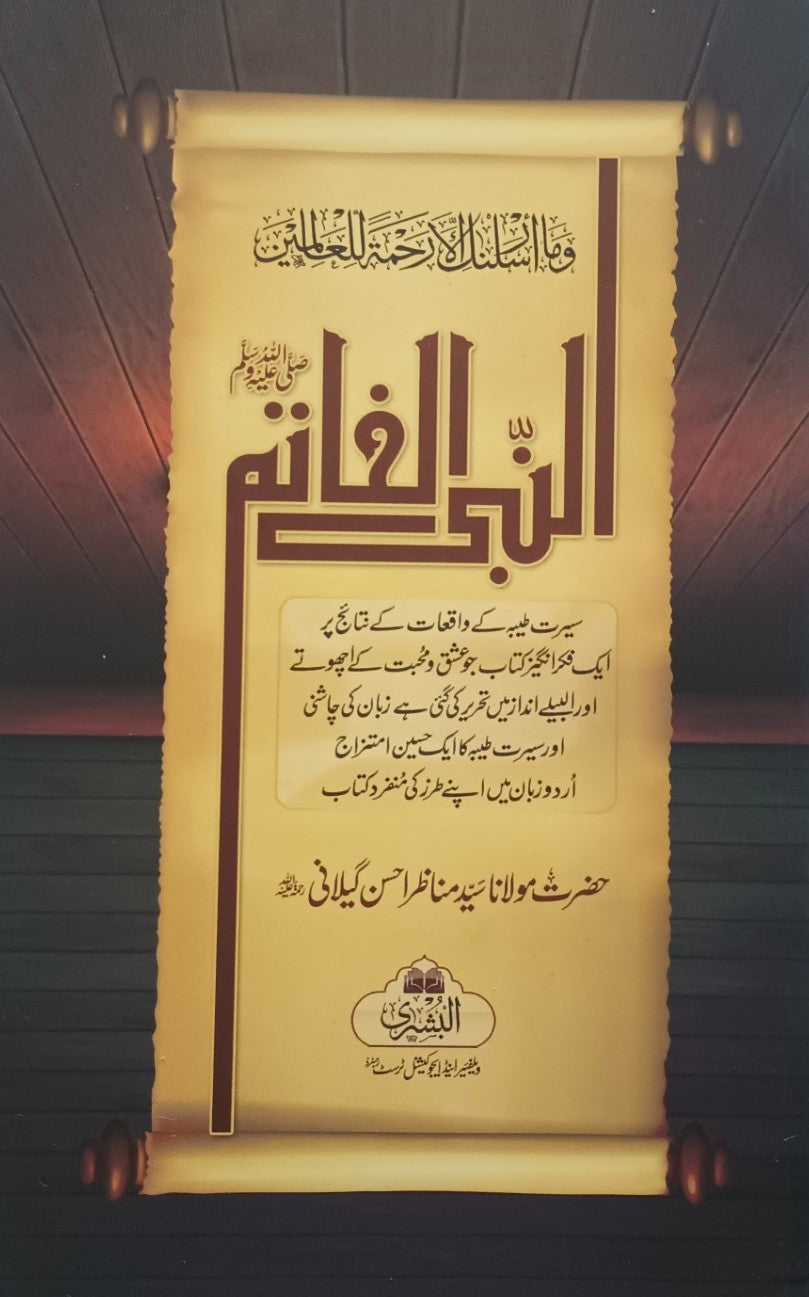 وَمَا أَرْسَلْنٰكَ إِلَّا رَحْمَةً لِّلْعَالَمِيْنَ
النّبی الخاتم صَلَّی اللّٰهُ عَلَيْهِ وَسَلَّم
سیرت طیبہ کے واقعات کے نتائج پر
ایک فکر انگیز کتاب جو عشق و محبت کے اچھوتے
اور البیلے انداز میں تحریر کی گئی ہے زبان کی چاشنی
اور سیرت طیبہ کا ایک حسین امتزاج
اُردو زبان میں اپنے طرز کی مُنفرد کتاب
حضرت مولانا سیّد مناظر احسن گیلانی رحمۃ اللہ علیہ
البُشریٰ
ویلفیئر اینڈ ایجوکیشنل ٹرسٹ رجسٹرڈ